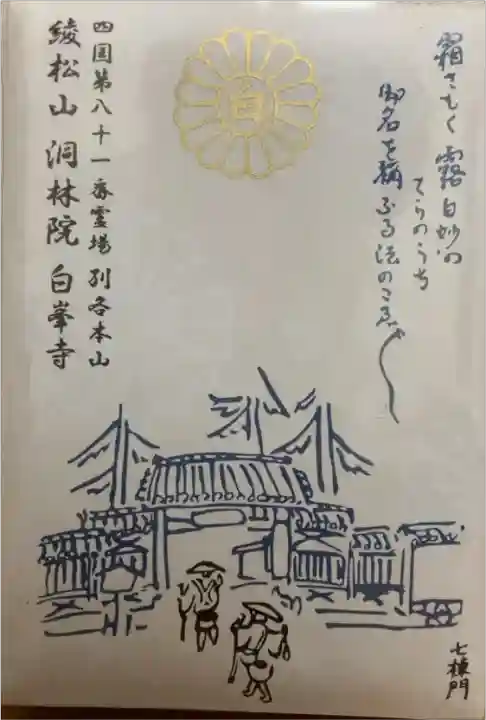 霜さむく 露白妙の
てらのうち
御名を稱ふる法のこゑ〴〵
白
四国第八十一番霊場 別各本山
綾松山 洞林院 白峯寺
七棟門